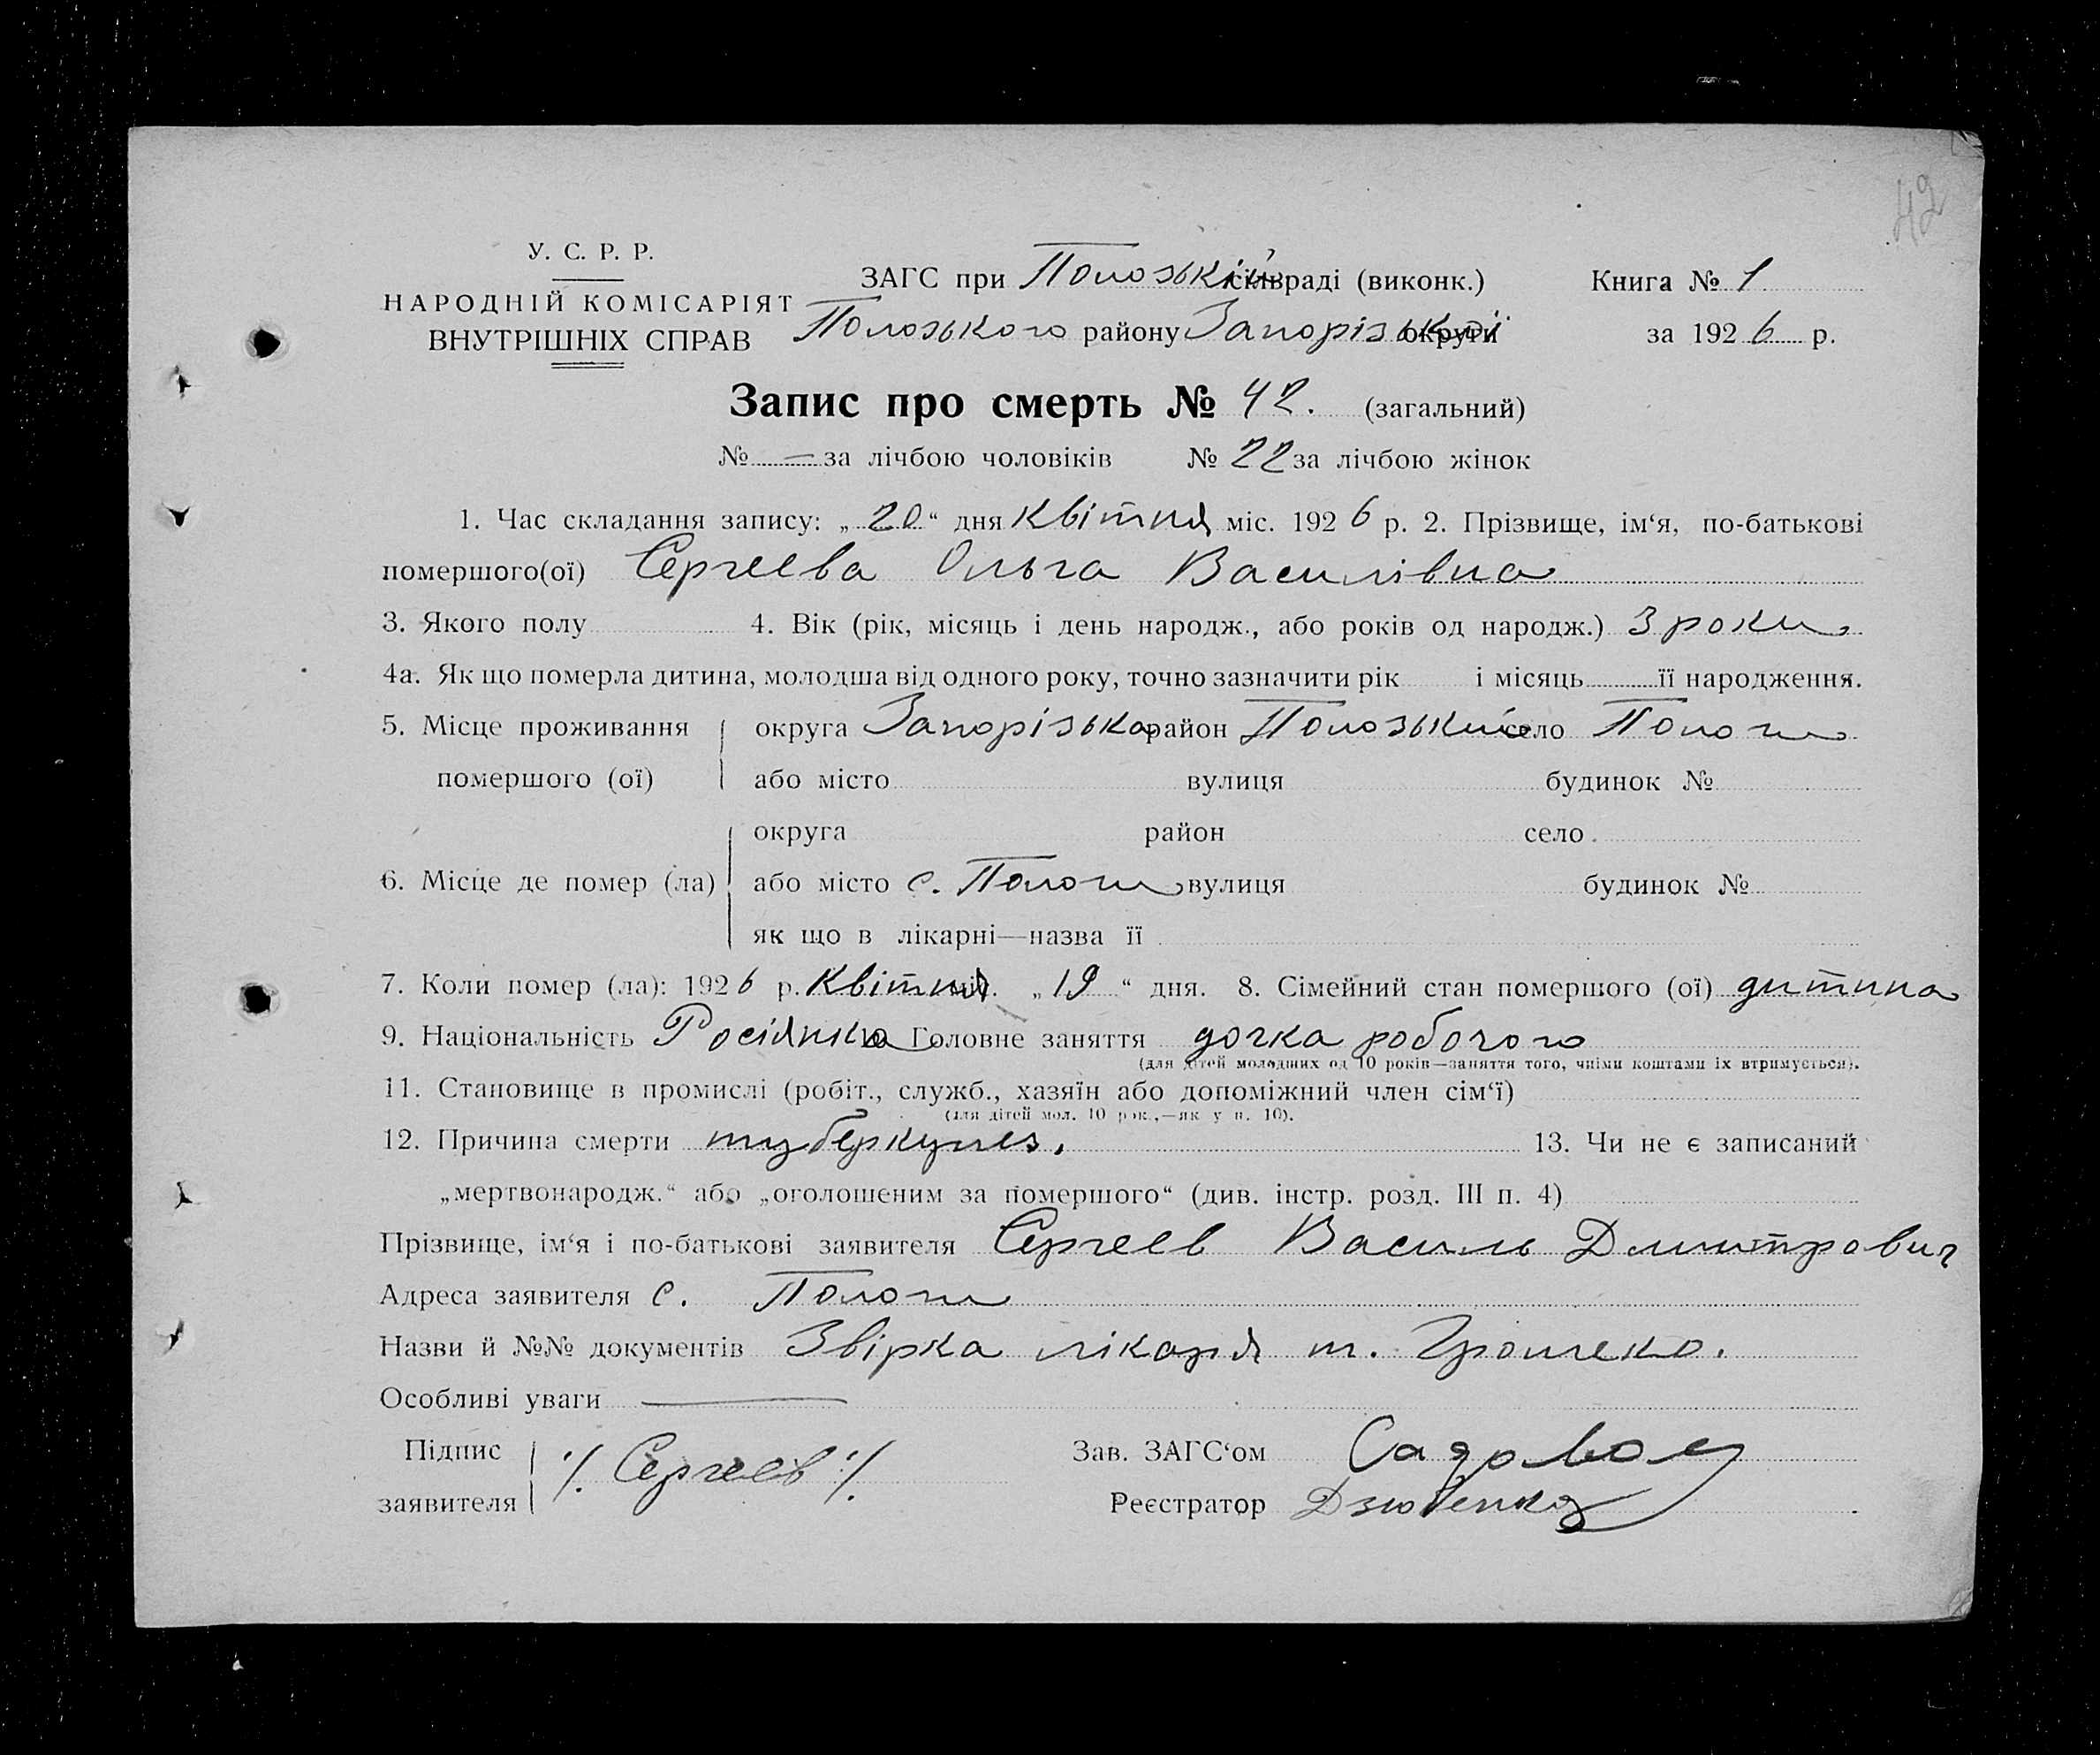 42
У. С. Р. Р.
НАРОДНІЙ КОМІСАРІЯТ
ВНУТРІШНІХ СПРАВ
ЗАГС при Полозькій сільраді (виконк.)
Полозького району Запорізької округи
Книга № 1
за 1926 р.
Запис про смерть № 42. (загальний)
№ — за лічбою чоловіків № 22 за лічбою жінок
1. Час складання запису: „20“ дня Квітня міс. 1926 р. 2. Прізвище, ім‘я, по-батькові
помершого(ої) Сергеева Ольга Василівна
3. Якого полу 4. Вік (рік, місяць і день народж., або років од народж.) 3 роки
4а. Як що померла дитина, молодша від одного року, точно зазначити рік і місяць її народження.
5. Місце проживання помершого (ої) округа Запорізька район Полозький село Пологи
або місто вулиця будинок №
округа район село
6. Місце де помер (ла) або місто с. Пологи вулиця будинок №
як що в лікарні—назва її
7. Коли помер (ла): 1926 р. Квітня міс. „19“ дня. 8. Сімейний стан помершого (ої) дитина
9. Національність Росіянка Головне заняття дочка робочого
(для дітей молодших од 10 років—заняття того, чиїми коштами їх втримується).
11. Становище в промислі (робіт., служб., хазяїн або допоміжний член сім‘ї)
(для дітей мол. 10 рок.,—як у п. 10).
12. Причина смерти туберкульоз. 13. Чи не є записаний
„мертвонародж.“ або „оголошеним за помершого“ (див. інстр. розд. III п. 4)
Прізвище, ім‘я і по-батькові заявителя Сергеев Василь Дмитрович
Адреса заявителя с. Пологи
Назви й №№ документів Звірка лікаря т.
Особливі уваги —
Підпис заявителя /Сергеев/
Зав. ЗАГС‘ом
Реєстратор Дзюбенко